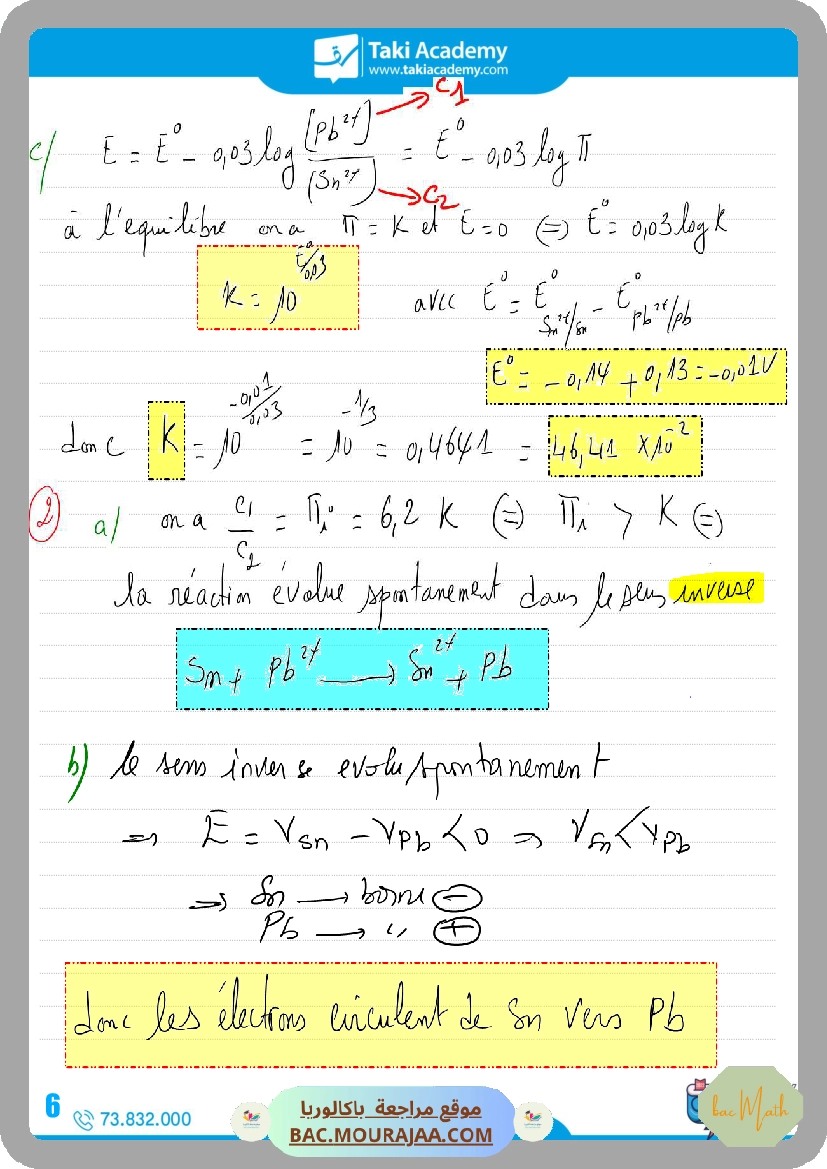 Taki Academy
www.takiacademy.com
c/ E = E° - 0,03 log [Pb²⁺]/[Sn²⁺] = E° - 0,03 log Π
C1
C2
à l'equilibre on a Π = K et E = 0 ⇔ E° = 0,03 log K
K = 10^(E°/0,03) avec E° = E° Sn²⁺/Sn - E° Pb²⁺/Pb
E° = -0,14 + 0,13 = -0,01V
donc K = 10^(-0,01/0,03) = 10^(-1/3) = 0,4641 = 46,41 × 10⁻²
2 a/ on a C1/C2 = Πi = 6,2 K ⇔ Πi > K ⇔
la réaction évolue spontanement dans le sens inverse
Sn + Pb²⁺ → Sn²⁺ + Pb
b) le sens inverse evolu spontanement
⇒ E = VSn - VPb < 0 ⇒ VSn < VPb
⇒ Sn → borne ⊖
Pb → ,, ⊕
donc les électrons circulent de Sn vers Pb
6
73.832.000
موقع مراجعة باكالوريا
BAC.MOURAJAA.COM
bac Math